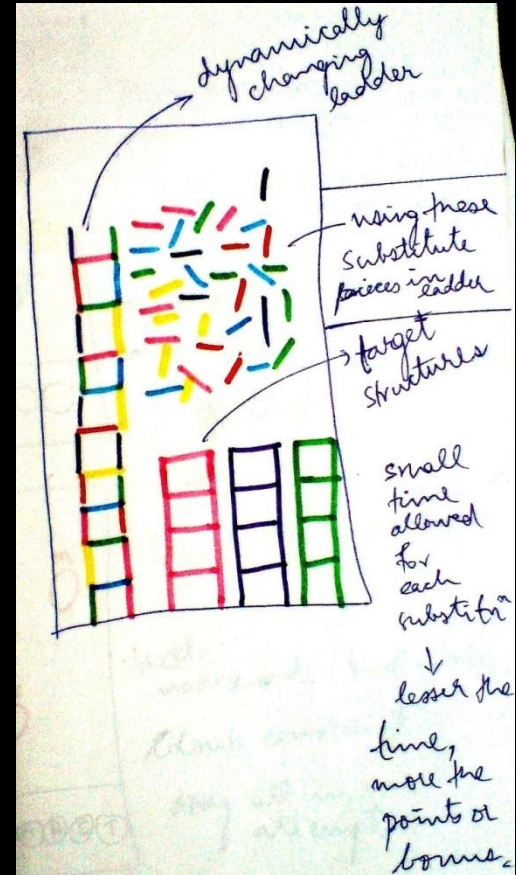 dynamically
changing
ladder
using these
substitute
pieces in ladder
target
structures
small
time
allowed
for
each
substitⁿ
↓
lesser the
time,
more the
points or
bonus.